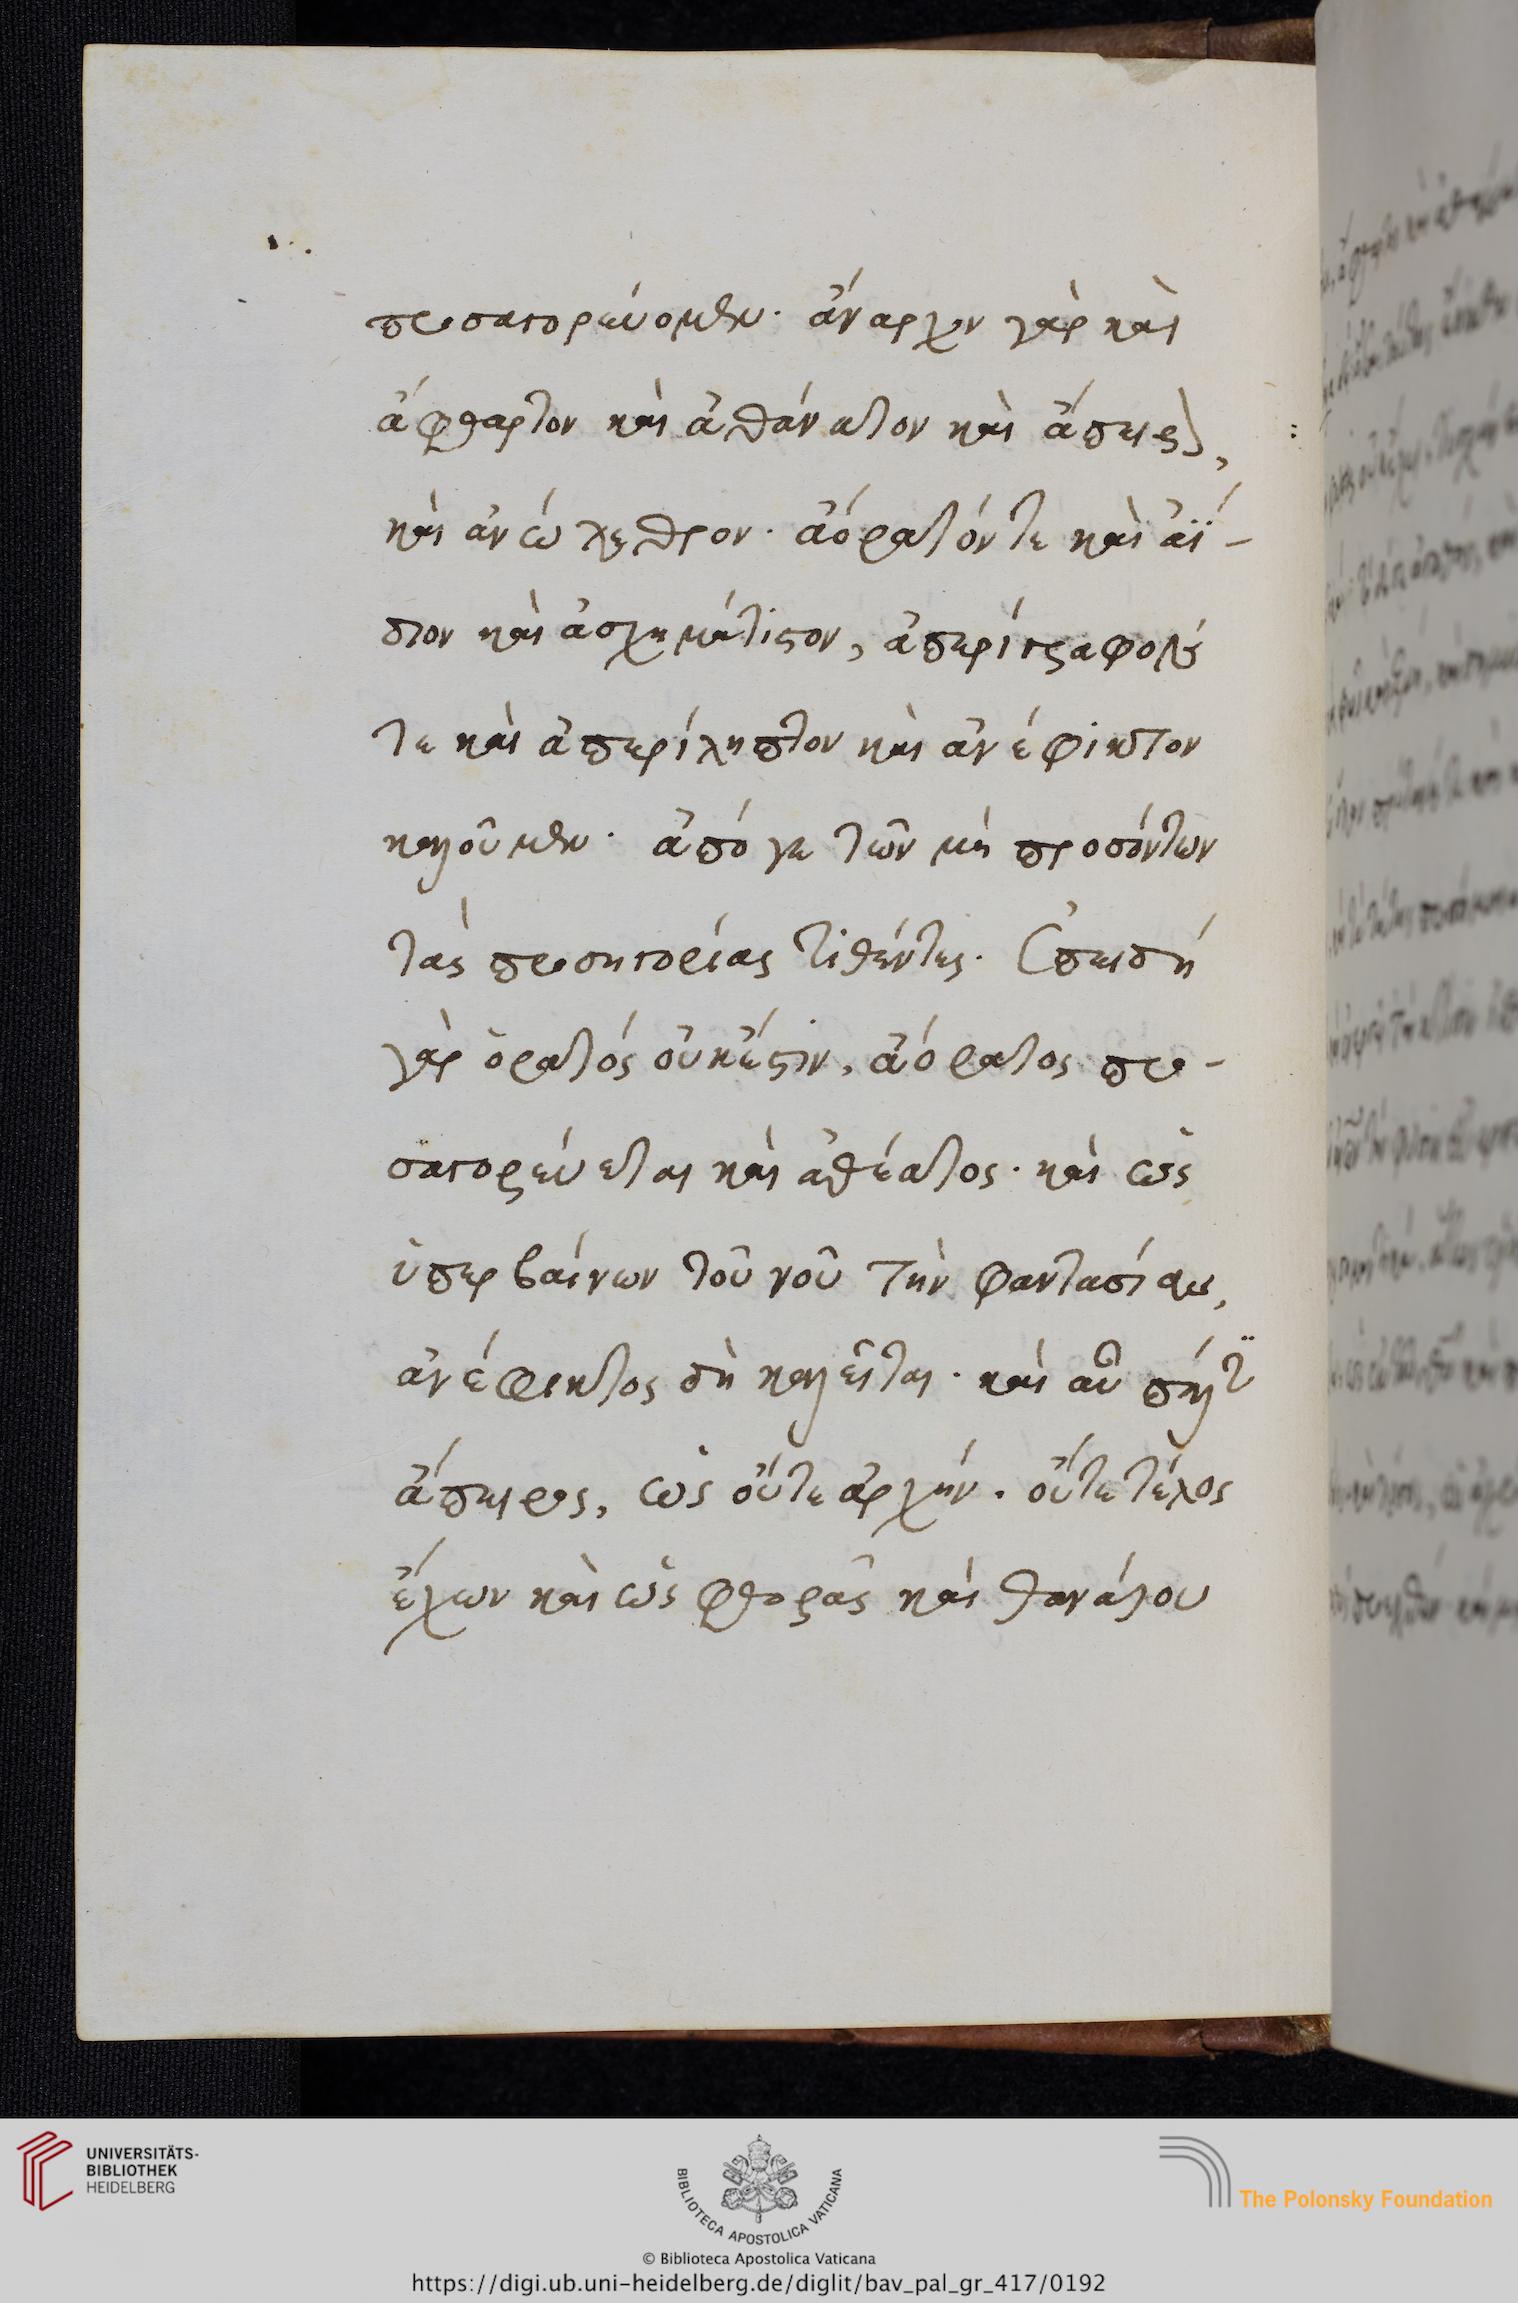 προσαγορεύομεν· ἄναρχον γὰρ καὶ
ἄφθαρτον καὶ ἀθάνατον καὶ ἄπειρον,
καὶ ἀνώλεθρον· ἀόρατόν τε καὶ ἀΐ-
διον καὶ ἀσχημάτιστον, ἀπερίγραφόν
τε καὶ ἀπερίληπτον καὶ ἀνέφικτον
καλοῦμεν· ἀπό γε τῶν μὴ προσόντων
τὰς προσηγορίας τιθέντες. Ἐπειδὴ
γὰρ ὁρατὸς οὐκ ἔστιν, ἀόρατος προ-
σαγορεύεται καὶ ἀθέατος· καὶ ὡς
ὑπερβαίνων τοῦ νοῦ τὴν φαντασίαν,
ἀνέφικτος δὴ καλεῖται· καὶ αὖ πάλιν
ἄπειρος, ὡς οὔτε ἀρχήν. οὔτε τέλος
ἔχων καὶ ὡς φθορᾶς καὶ θανάτου
UNIVERSITÄTS-
BIBLIOTHEK
HEIDELBERG
BIBLIOTECA APOSTOLICA VATICANA
The Polonsky Foundation
© Biblioteca Apostolica Vaticana
https://digi.ub.uni-heidelberg.de/diglit/bav_pal_gr_417/0192